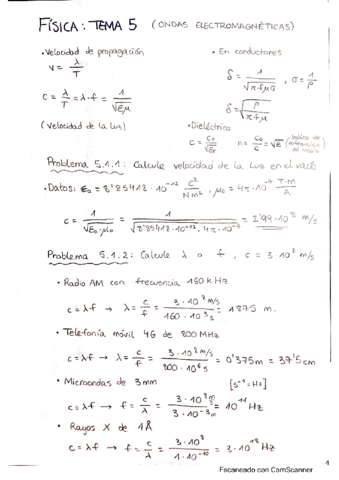 FÍSICA: TEMA 5 (ONDAS ELECTROMAGNÉTICAS)
• Velocidad de propagación
v = λ/T
c = λ/T = λ·f = 1/√εμ
(velocidad de la luz)
• En conductores
δ = 1/√π·f·μσ , σ = 1/ρ
δ = √ρ/π·f·μ
• Dieléctrico
c = c₀/√εr n = c₀/c = √ε (índice de refracción del medio)
Problema 5.1.1: Calcule velocidad de la luz en el vacío
• Datos: ε₀ = 8'85418·10⁻¹² C²/N·m² , μ₀ = 4π·10⁻⁷ T·m/A
c = 1/√ε₀·μ₀ = 1/√8'85418·10⁻¹²·4π·10⁻⁷ = 2'99·10⁸ m/s
Problema 5.1.2: Calcule λ o f , c = 3·10⁸ m/s
• Radio AM con frecuencia 160 kHz
c = λf → λ = c/f = 3·10⁸ m/s / 160·10³ s = 1875 m.
• Telefonía móvil 4G de 800 MHz
c = λf → λ = c/f = 3·10⁸ m/s / 800·10⁶ s = 0'375m = 37'5 cm
• Microondas de 3mm [s⁻¹ = Hz]
c = λf → f = c/λ = 3·10⁸ m/s / 3·10⁻³ m = 10¹¹ Hz
• Rayos X de 1Å
c = λf → f = c/λ = 3·10⁸ / 1·10⁻¹⁰ = 3·10¹⁸ Hz
1
Escaneado con CamScanner